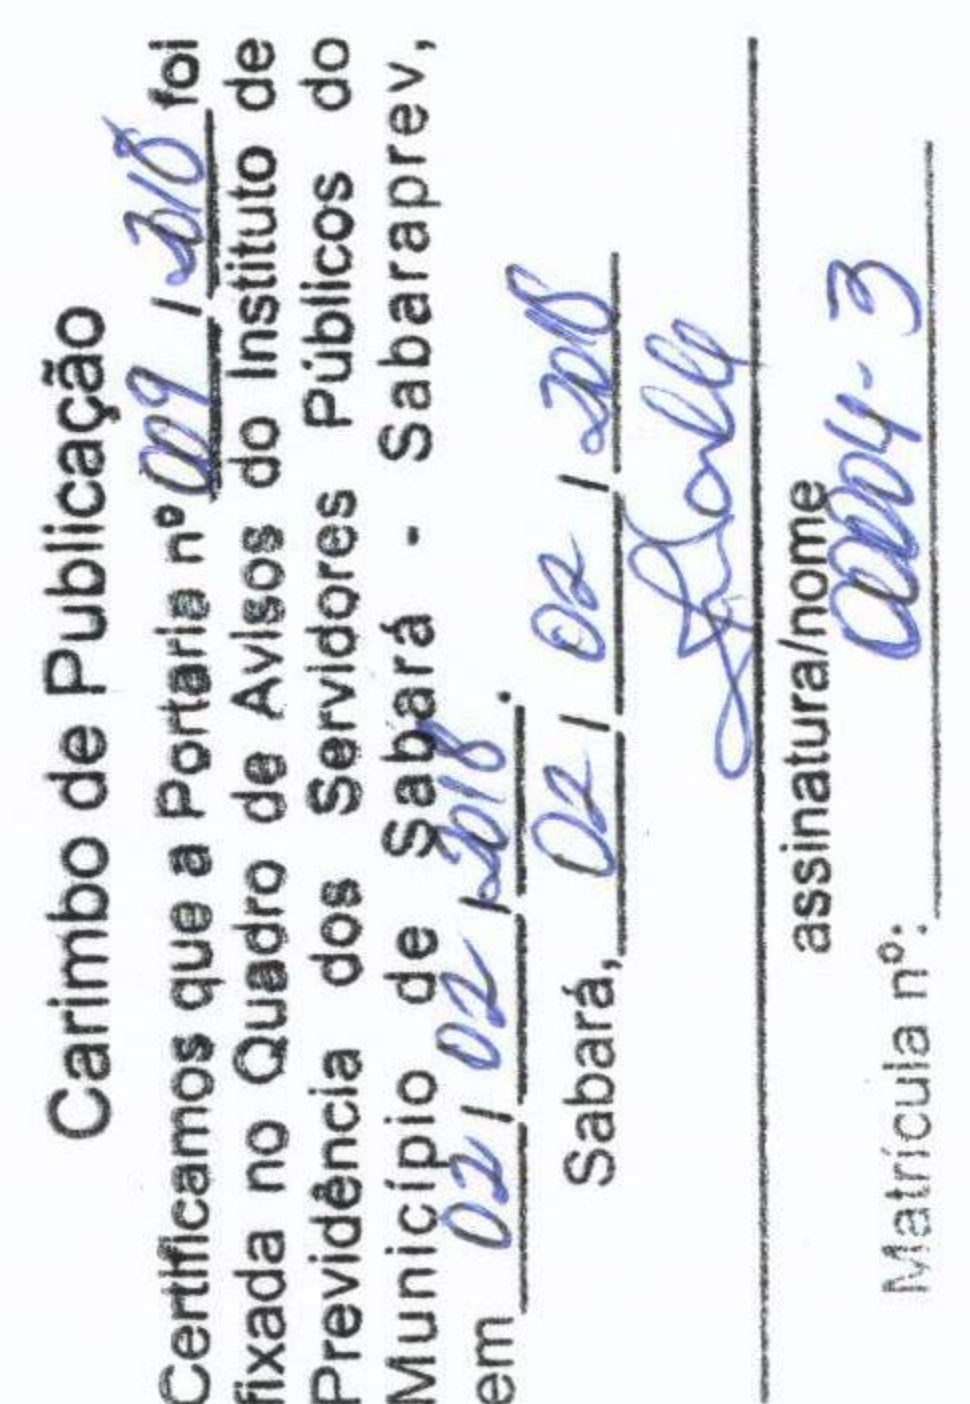 Carimbo de Publicação
Certificamos que a Portaria nº 009 / 2018 foi
fixada no Quadro de Avisos do Instituto de
Previdência dos Servidores Públicos do
Município de Sabará - Sabaraprev,
em 02 / 02 / 2018.
Sabará, 02 / 02 / 2018
assinatura/nome
Matrícula nº: 0004-3